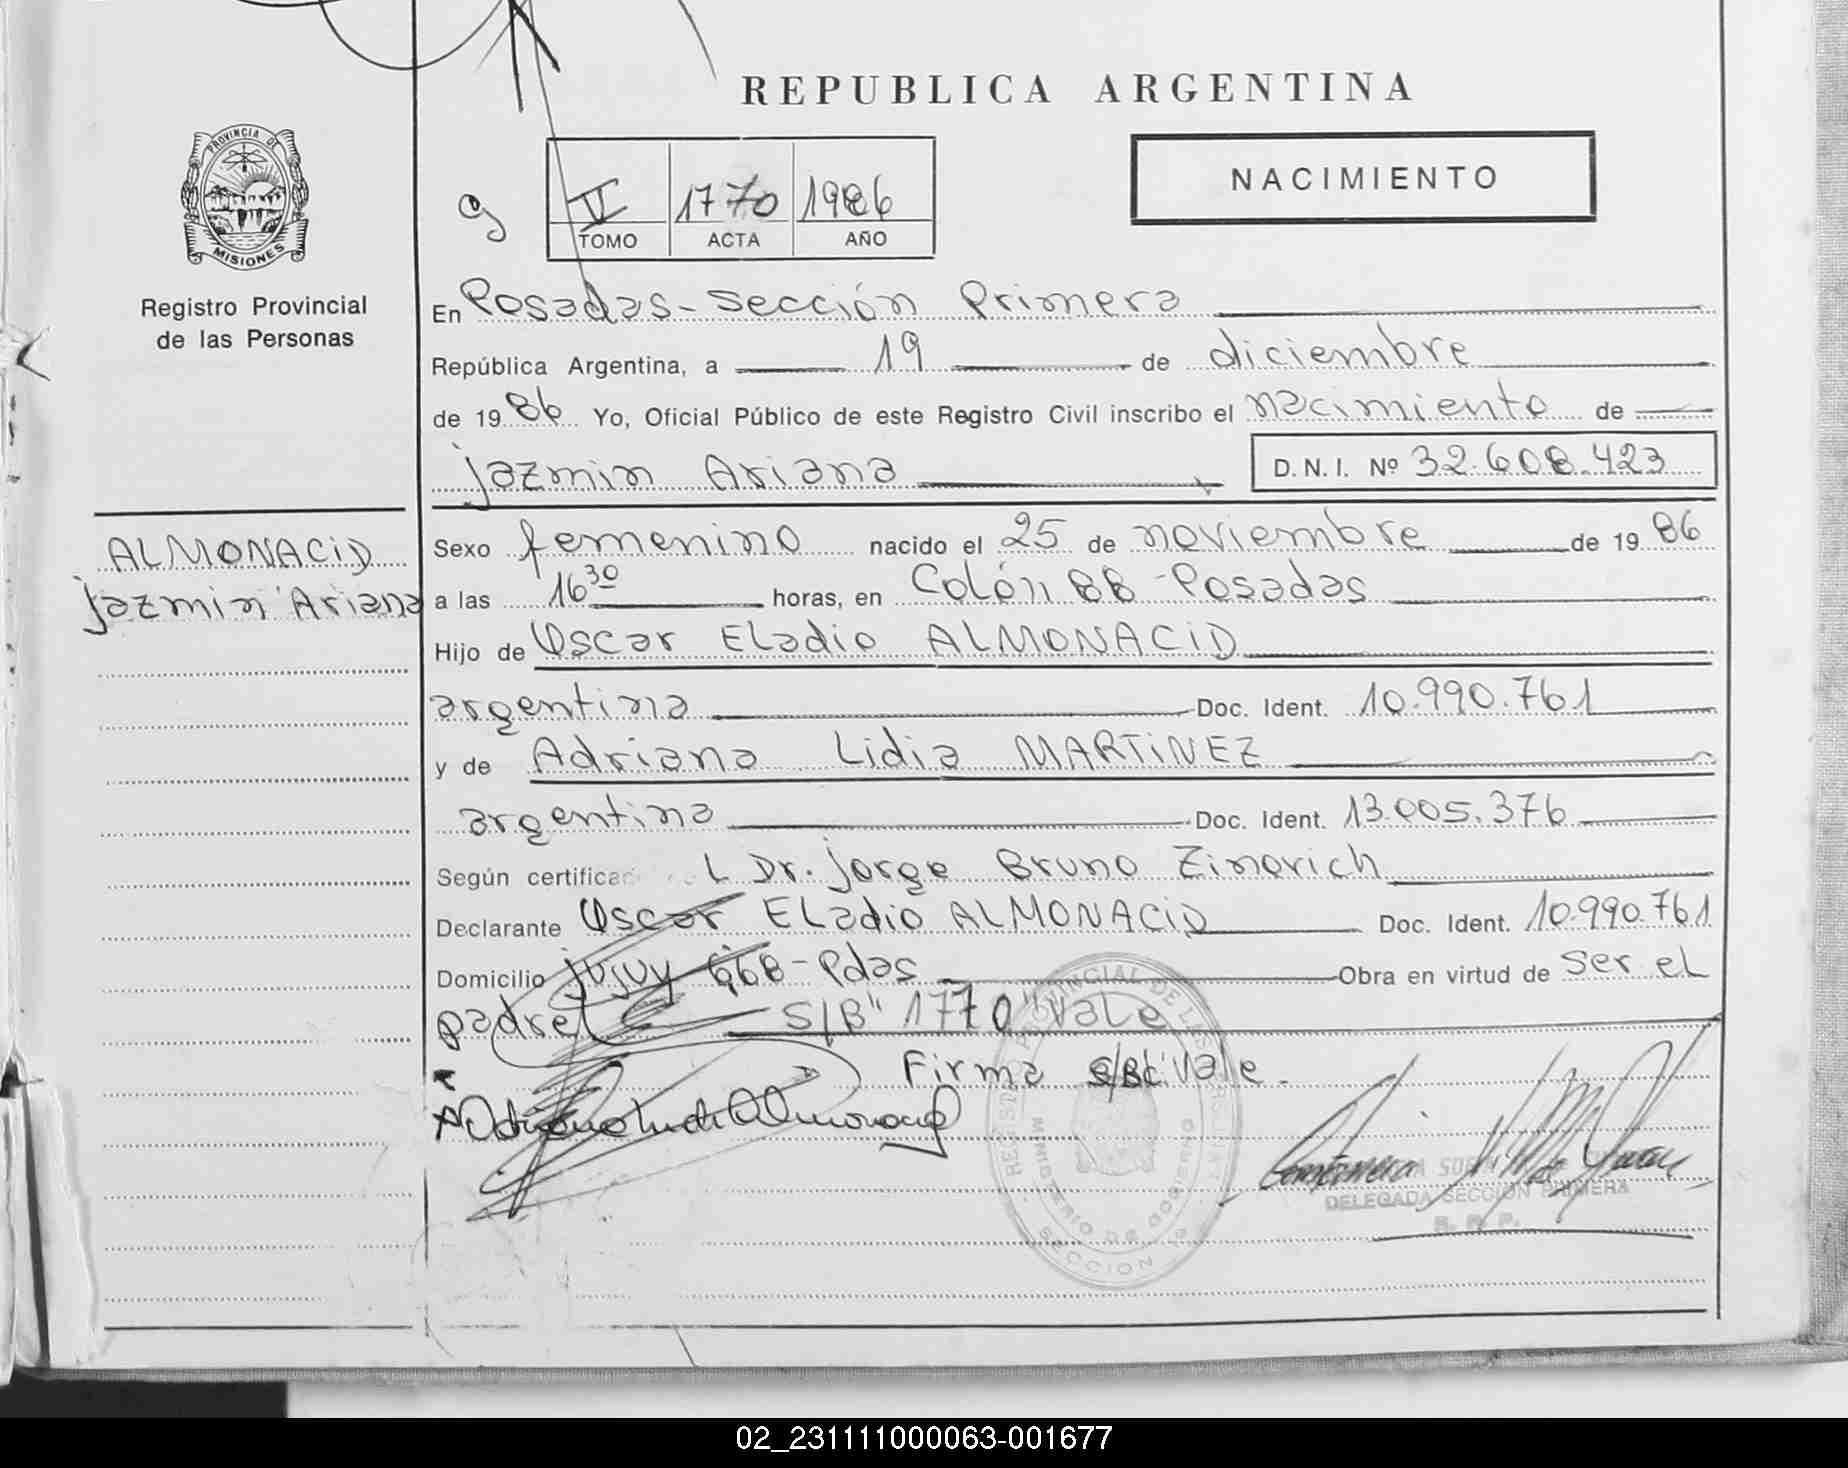 REPUBLICA ARGENTINA
PROVINCIA DE
MISIONES
Registro Provincial
de las Personas
VI 1770 1986
TOMO ACTA AÑO
NACIMIENTO
En Posadas-Sección Primera
República Argentina, a 19 de diciembre
de 1986 Yo, Oficial Público de este Registro Civil inscribo el nacimiento de
jazmin Ariana D.N.I. Nº 32.608.423
ALMONACiD
jazmin Ariana
Sexo femenino nacido el 25 de noviembre de 1986
a las 16 30 horas, en Colón 88 - Posadas
Hijo de Oscar Eladio ALMONACiD
argentina Doc. Ident. 10.990.761
y de Adriana Lidia MARTiNEZ
argentina Doc. Ident. 13.005.376
Según certificac L Dr. jorge Bruno Zinovich
Declarante Oscar Eladio ALMONACiD Doc. Ident. 10.990.761
Domicilio jujuy 668-Pdas Obra en virtud de ser el
padre S/B "1770" Vale
Firma Vale.
REGISTRO PROVINCIAL DE LAS PERSONAS
MINISTERIO DE GOBIERNO
SECCION 1ª
DELEGADA SECCION PRIMERA
R. P. P.
02_231111000063-001677